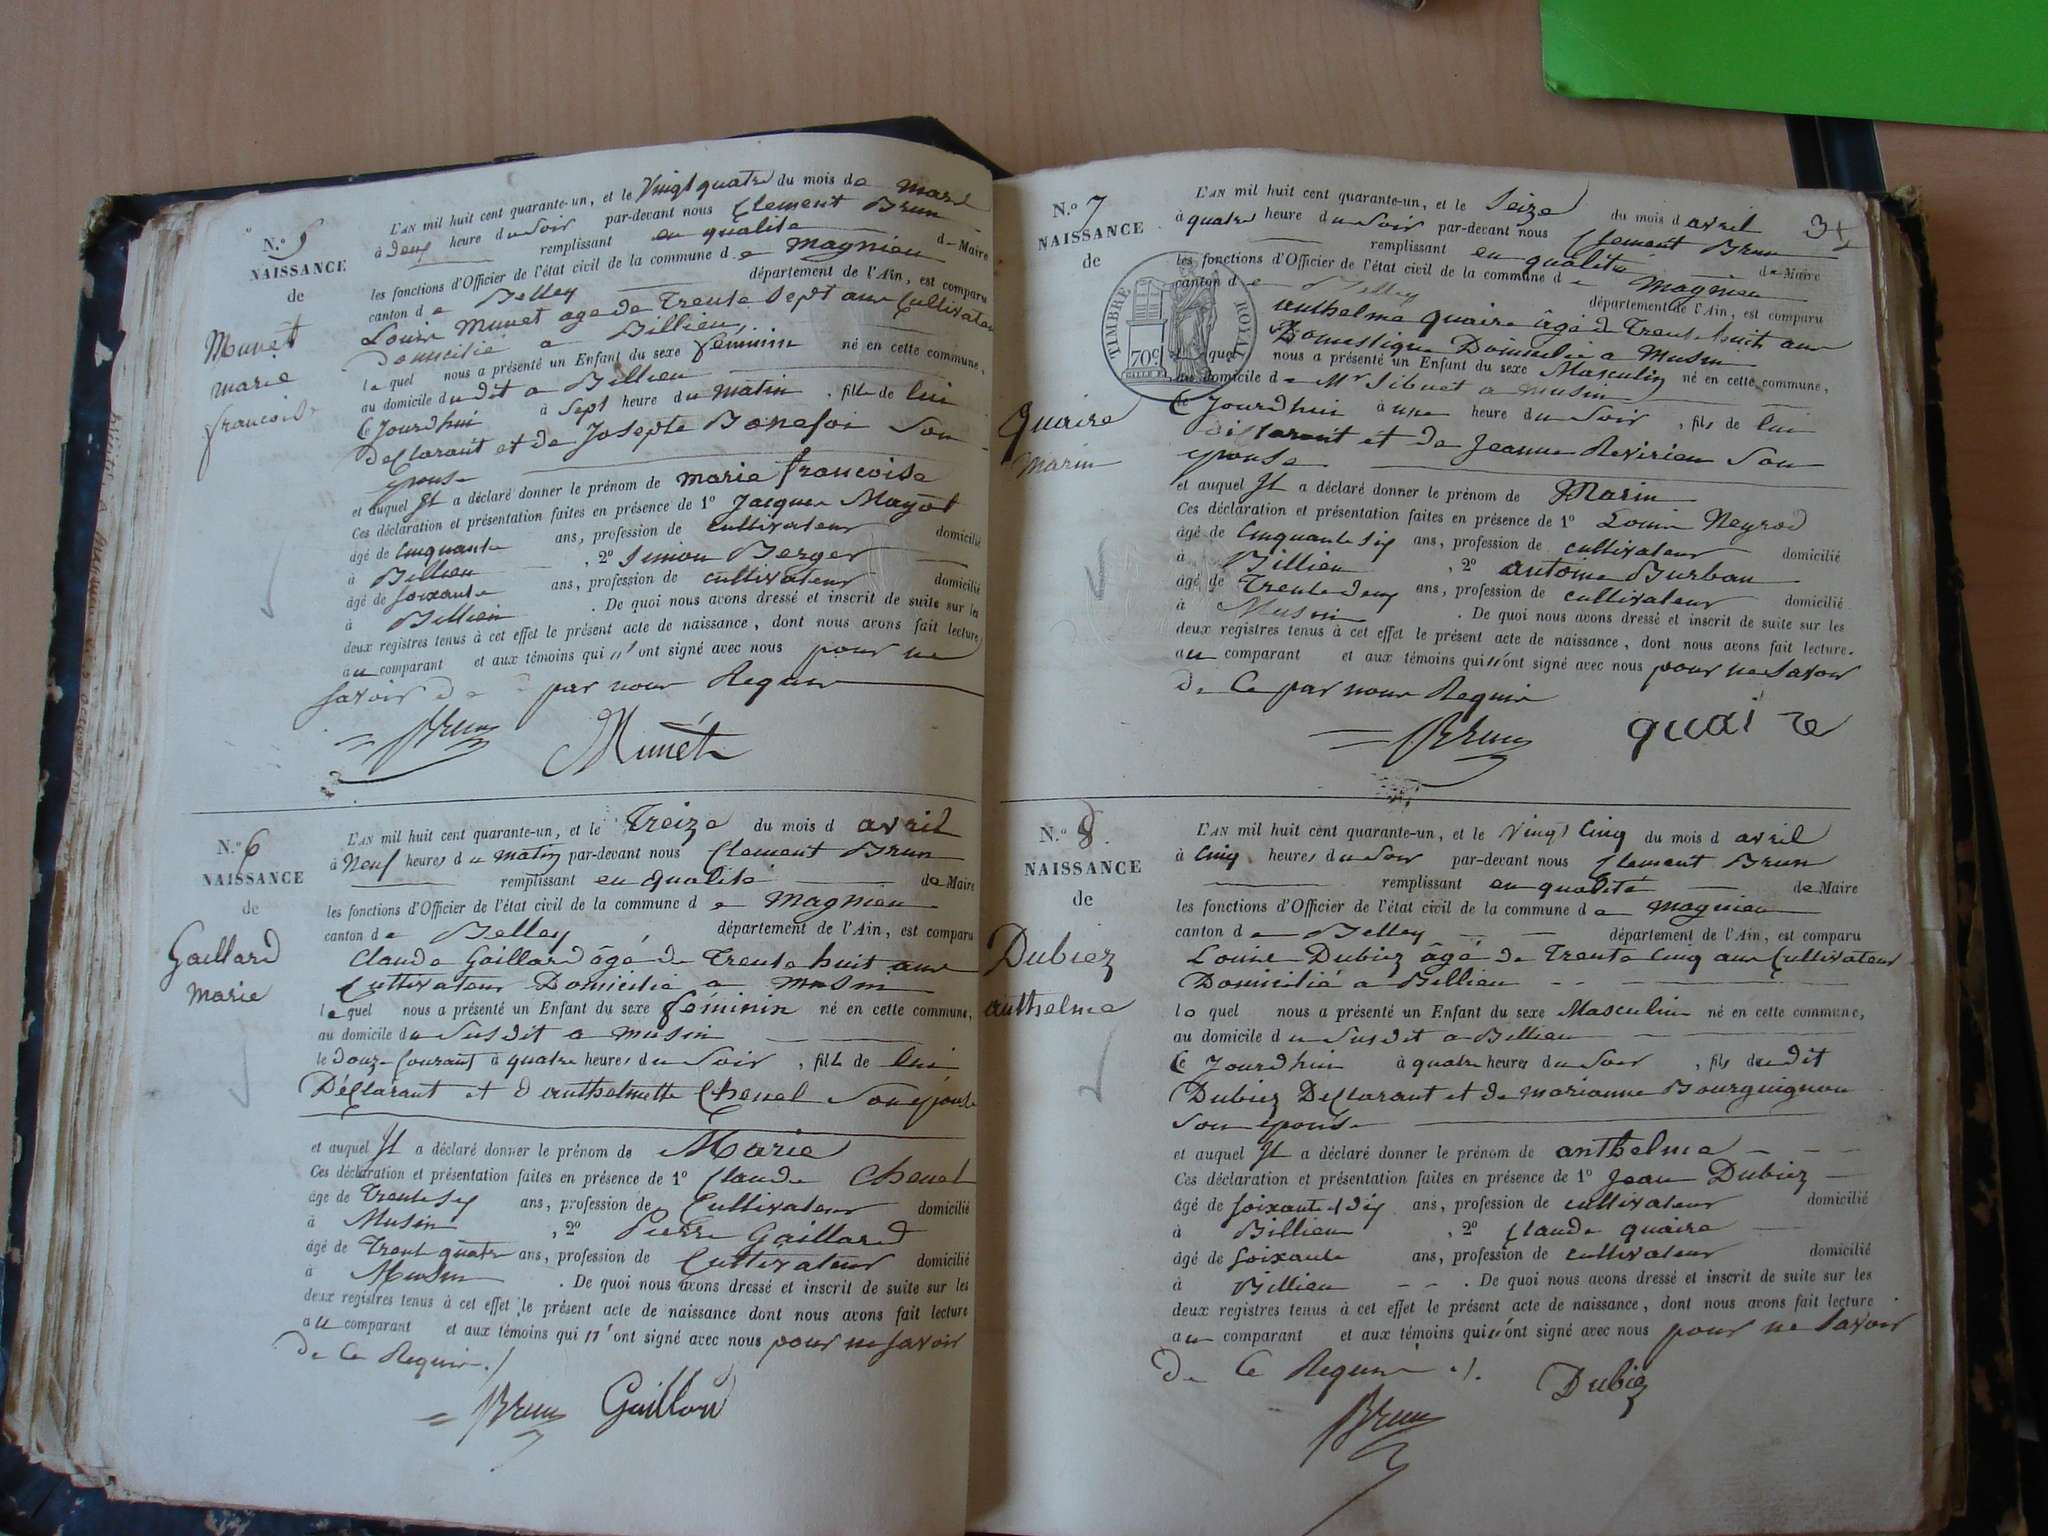 N.º 5
NAISSANCE
de
Munet
marie
francoise
L'AN mil huit cent quarante-un, et le Vingt quatre du mois de mars
à deux heure du Soir par-devant nous Clement Brun
remplissant en qualite de Maire
les fonctions d'Officier de l'état civil de la commune de Magnieu
canton de Belley département de l'Ain, est comparu
Louis Munet age de Trente Sept ans Cultivateur
domicilié a Billieu
lequel nous a présenté un Enfant du sexe feminin né en cette commune,
au domicile dudit a Billieu
Ce Jourdhui à Sept heure du matin, fille de lui
declarant et de Josepte Bonefoi Son
epouse
et auquel Il a déclaré donner le prénom de marie francoise
Ces déclaration et présentation faites en présence de 1º Jacques Mayot
âgé de Cinquante ans, profession de cultivateur domicilié
à Billieu, 2º Simon Berger
âgé de soixante ans, profession de cultivateur domicilié
à Billieu. De quoi nous avons dressé et inscrit de suite sur les
deux registres tenus à cet effet le présent acte de naissance, dont nous avons fait lecture
au comparant et aux témoins qui n'ont signé avec nous pour ne
savoir de par nous Requis
Brun Munét
N.º 6
NAISSANCE
de
Gaillard
Marie
L'AN mil huit cent quarante-un, et le Treize du mois d avril
à Neuf heures du matin par-devant nous Clement Brun
remplissant en qualité de Maire
les fonctions d'Officier de l'état civil de la commune de Magnieu
canton de Belley, département de l'Ain, est comparu
Claude Gaillard âgé de Trente huit ans
Cultivateur Domicilié a Musin
lequel nous a présenté un Enfant du sexe féminin né en cette commune,
au domicile du Susdit a Musin
le douze Courant à quatre heures du Soir, fille de lui
Déclarant et d anthelmette Chenel Son epouse
et auquel Il a déclaré donner le prénom de Marie
Ces déclaration et présentation faites en présence de 1º Claude Chenel
âgé de Trente Six ans, profession de Cultivateur domicilié
à Musin, 2º Pierre Gaillard
âgé de Trent quatre ans, profession de Cultivateur domicilié
à Musin. De quoi nous avons dressé et inscrit de suite sur les
deux registres tenus à cet effet le présent acte de naissance dont nous avons fait lecture
au comparant et aux témoins qui n'ont signé avec nous pour ne savoir
de Ce Requis ./
Brun Gaillard
34
N.º 7
NAISSANCE
de
TIMBRE ROYAL
70c
Quaire
Marin
L'AN mil huit cent quarante-un, et le Seize du mois d avril
à quatre heure du Soir par-devant nous Clement Brun
remplissant en qualité de Maire
les fonctions d'Officier de l'état civil de la commune de Magnieu
canton de Belley département de l'Ain, est comparu
anthelme quaire âgé de Trente huit ans
Domestique Domicilié a Musin
lequel nous a présenté un Enfant du sexe Masculin né en cette commune,
au domicile de Mr Sibuet a Musin
Ce Jourdhui à une heure du Soir, fils de lui
déclarant et de Jeanne Revirieu Son
epouse
et auquel Il a déclaré donner le prénom de Marin
Ces déclaration et présentation faites en présence de 1º Louis Neyrod
âgé de Cinquante Six ans, profession de cultivateur domicilié
à Billieu, 2º antoine Burban
âgé de Trente deux ans, profession de cultivateur domicilié
à Musin. De quoi nous avons dressé et inscrit de suite sur les
deux registres tenus à cet effet le présent acte de naissance, dont nous avons fait lecture.
au comparant et aux témoins qui n'ont signé avec nous pour ne Savoir
de Ce par nous Requis
Brun quaire
N.º 8
NAISSANCE
de
Dubiez
anthelme
L'AN mil huit cent quarante-un, et le Vingt Cinq du mois d avril
à Cinq heures du Soir par-devant nous Clement Brun
remplissant en qualité de Maire
les fonctions d'Officier de l'état civil de la commune de Magnieu
canton de Belley département de l'Ain, est comparu
Louis Dubiez âgé de Trente Cinq ans Cultivateur
Domicilié a Billieu
lequel nous a présenté un Enfant du sexe Masculin né en cette commune,
au domicile du Susdit a Billieu
Ce Jourdhui à quatre heures du Soir, fils dudit
Dubiez Declarant et de Marianne Bourguignon
Son epouse
et auquel Il a déclaré donner le prénom de anthelme
Ces déclaration et présentation faites en présence de 1º Jean Dubiez
âgé de soixante et dix ans, profession de cultivateur domicilié
à Billieu, 2º Claude quaire
âgé de soixante ans, profession de cultivateur domicilié
à Billieu. De quoi nous avons dressé et inscrit de suite sur les
deux registres tenus à cet effet le présent acte de naissance, dont nous avons fait lecture
au comparant et aux témoins qui n'ont signé avec nous pour ne Savoir
de Ce Requis ./.
Dubiez
Brun